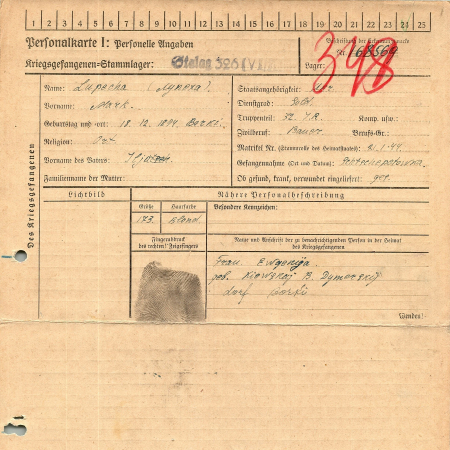 1 2 3 4 5 6 7 8 9 10 11 12 13 14 15 16 17 18 19 20 21 22 23 24 25
Personalkarte I: Personelle Angaben
Kriegsgefangenen-Stammlager: Stalag 326 (VI
Beschriftung der Erkennungsmarke
Nr. 
Lager:
398
Des Kriegsgefangenen
Name: Lupocha (Лупоха)
Vorname: Mark
Geburtstag und -ort: 18.12.1894 Borki
Religion: Ort
Vorname des Vaters:
Familienname der Mutter:
Staatsangehörigkeit:
Dienstgrad: Sold.
Truppenteil: 72. I.R. Komp. usw.:
Zivilberuf: Bauer Berufs-Gr.:
Matrikel Nr. (Stammrolle des Heimatstaates):
Gefangennahme (Ort und Datum):
Ob gesund, krank, verwundet eingeliefert: ges.
Lichtbild
Nähere Personalbeschreibung
Größe Haarfarbe Besondere Kennzeichen:
173 blond
Fingerabdruck
des rechten! Zeigefingers
Name und Anschrift der zu benachrichtigenden Person in der Heimat
des Kriegsgefangenen
Frau Ewgenija
B. Dymerskij
dorf Borki
Wenden!